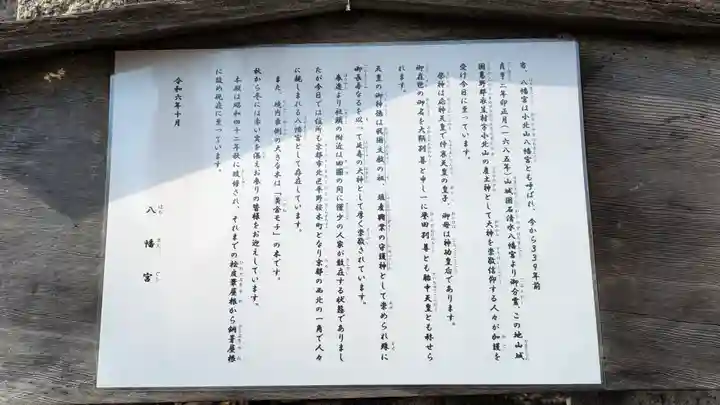 當、八幡宮は小北山八幡宮とも呼ばれ、今から339年前
貞享二年卯正月(一六八五年)山城国石清水八幡宮より御分霊、この地山城
国葛野郡衣笠村字小北山の産土神として大神を崇敬信仰する人々が加護を
受け今日に至っています。
祭神は応神天皇で仲哀天皇の皇子、御母は神功皇后であります。
御在世の御名を大鞆別尊と申し一に誉田別尊とも胎中天皇とも称せら
れます。
天皇の御神徳は戦術文教の祖、殖産興業の守護神として崇められ殊に
御長寿なるを以って延寿の大神として厚く崇敬されています。
奉遷より社頭の附近は田圃の間に僅少の人家が散在する状態でありまし
たが今日では住所も京都市北区平野桜木町となり京都の西北の一角で人々
に親しまれる八幡宮として存在しています。
また、境内東側の大きな木は「黄金モチ」の木です。
秋から冬には赤い実を備えお参りの皆様をお迎えしています。
本殿は昭和四十二年秋に改修され、それまでの桧皮葺屋根から銅葺屋根
に改め現在に至っています。
令和六年十月
八幡宮